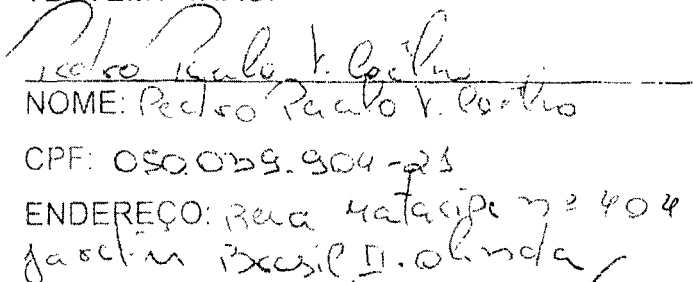 Pedro Paulo V. Coelho
NOME: Pedro Paulo V. Coelho
CPF: 050.039.904-21
ENDEREÇO: Rua Mataripe nº 404
Jardim Brasil II. Olinda